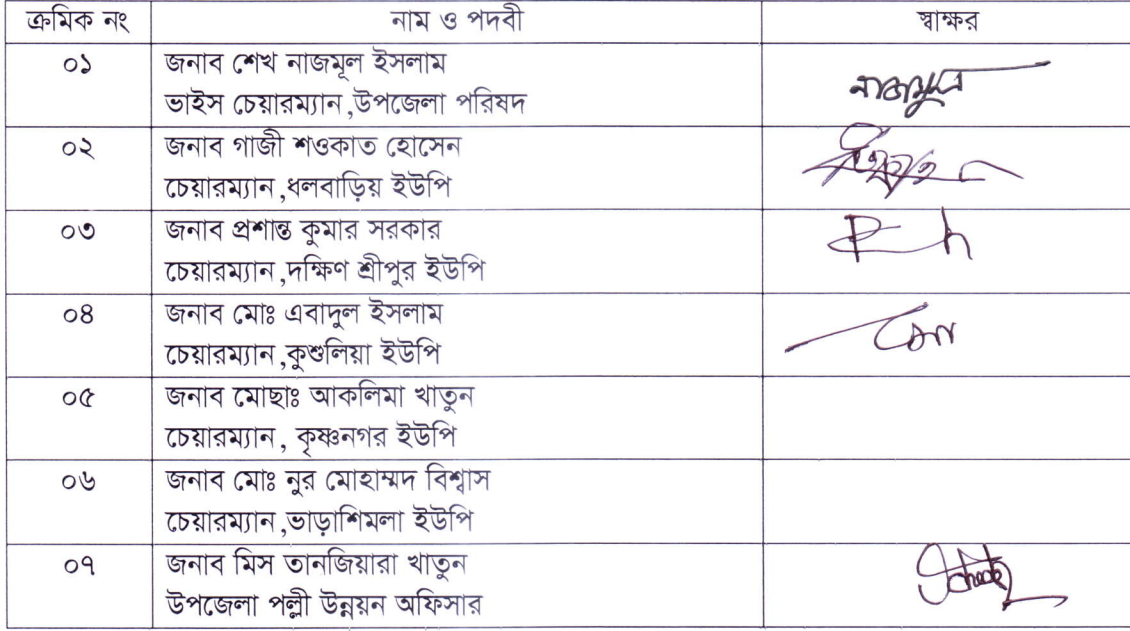 ক্রমিক নং নাম ও পদবী স্বাক্ষর
০১ জনাব শেখ নাজমূল ইসলাম
ভাইস চেয়ারম্যান ,উপজেলা পরিষদ
নাজমুল
০২ জনাব গাজী শওকাত হোসেন
চেয়ারম্যান ,ধলবাড়িয় ইউপি
০৩ জনাব প্রশান্ত কুমার সরকার
চেয়ারম্যান ,দক্ষিণ শ্রীপুর ইউপি
০৪ জনাব মোঃ এবাদুল ইসলাম
চেয়ারম্যান ,কুশুলিয়া ইউপি
০৫ জনাব মোছাঃ আকলিমা খাতুন
চেয়ারম্যান , কৃষ্ণনগর ইউপি
০৬ জনাব মোঃ নুর মোহাম্মদ বিশ্বাস
চেয়ারম্যান ,ভাড়াশিমলা ইউপি
০৭ জনাব মিস তানজিয়ারা খাতুন
উপজেলা পল্লী উন্নয়ন অফিসার